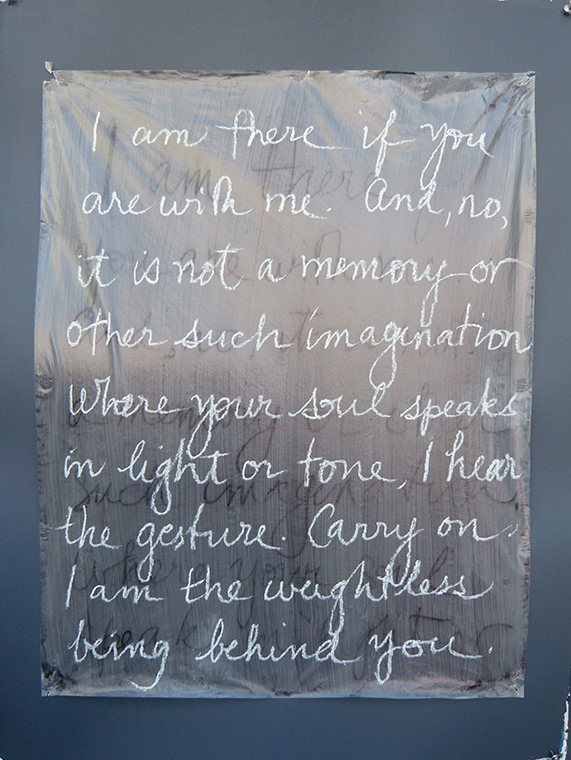 I am there if you
are with me. And, no,
it is not a memory or
other such imagination
Where your soul speaks
in light or tone, I hear
the gesture. Carry on.
I am the weightless
being behind you.